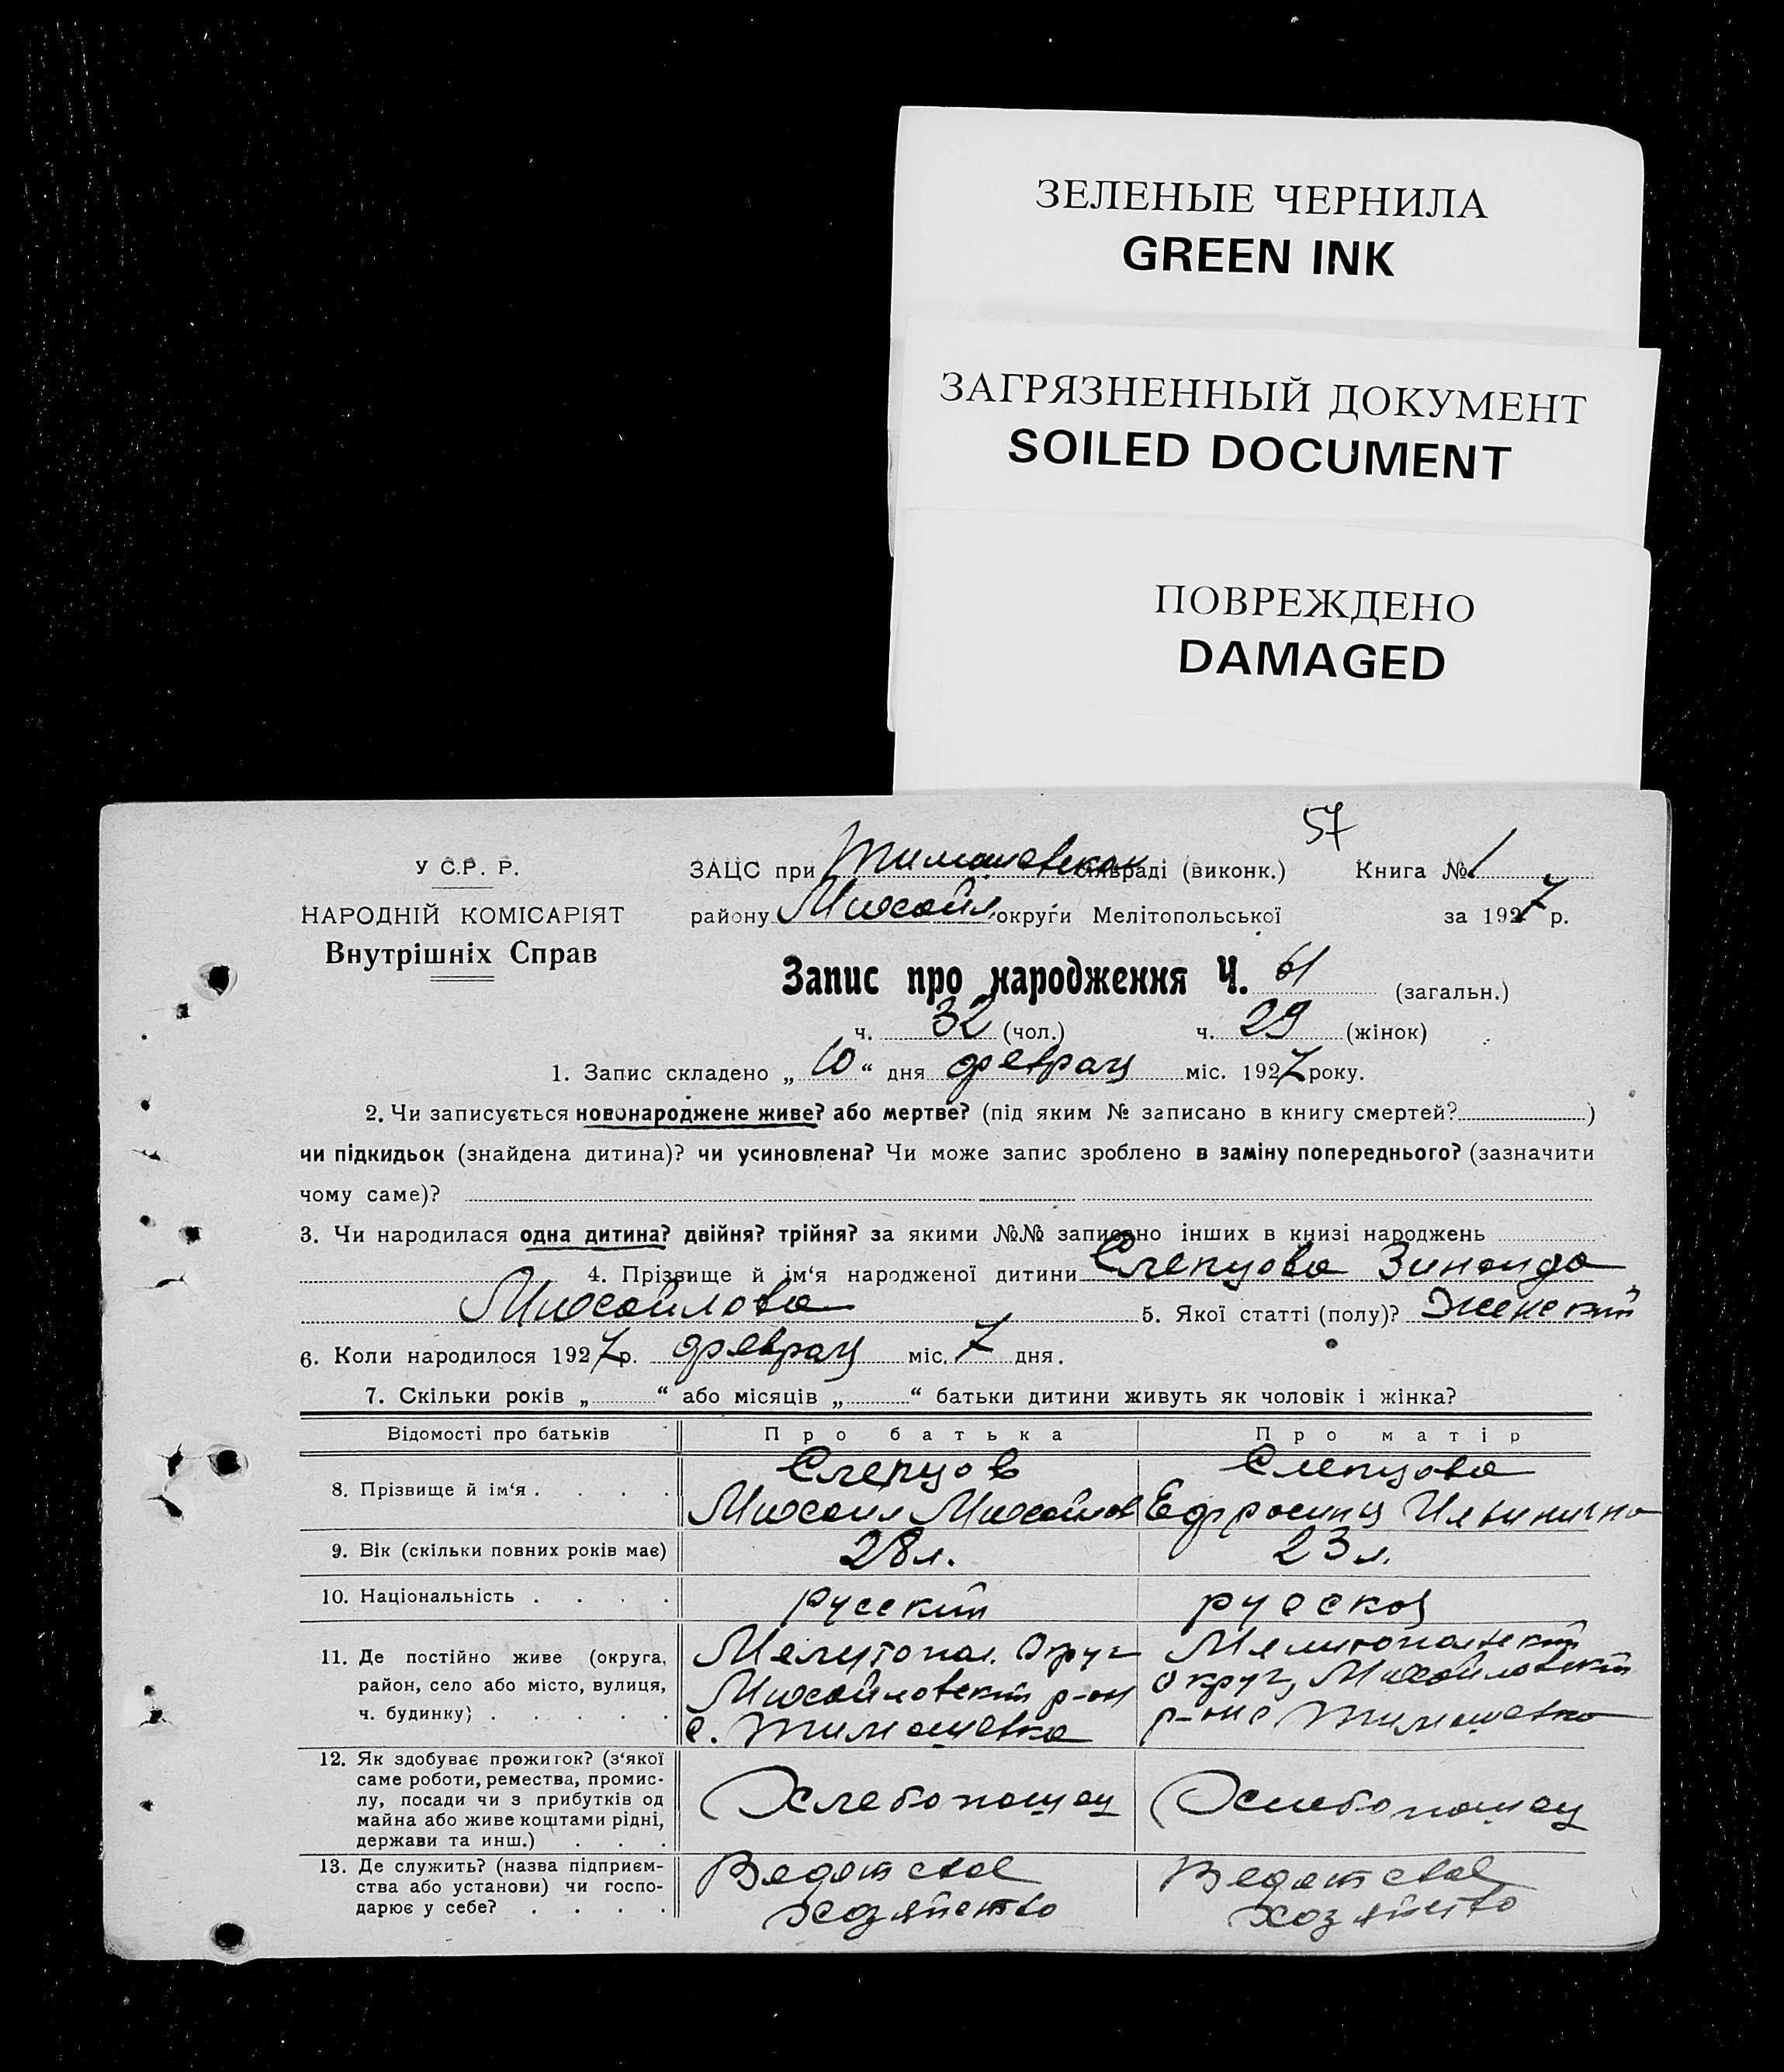 ЗЕЛЕНЫЕ ЧЕРНИЛА
GREEN INK
ЗАГРЯЗНЕННЫЙ ДОКУМЕНТ
SOILED DOCUMENT
ПОВРЕЖДЕНО
DAMAGED
57
У С.Р. Р.
НАРОДНІЙ КОМІСАРІЯТ
Внутрішніх Справ
ЗАЦС при Тимошевском сільраді (виконк.) Книга № 1
району Михайл. округи Мелітопольської за 1927 р.
Запис про народження Ч. 61 (загальн.)
ч. 32 (чол.) ч. 29 (жінок)
1. Запис складено „ 10 “ дня февраля міс. 1927 року.
2. Чи записується новонароджене живе? або мертве? (під яким № записано в книгу смертей? )
чи підкидьок (знайдена дитина)? чи усиновлена? Чи може запис зроблено в заміну попереднього? (зазначити
чому саме)?
3. Чи народилася одна дитина? двійня? трійня? за якими №№ записано інших в книзі народжень
4. Прізвище й ім‘я народженої дитини Слепцова Зинаида
Михайлова 5. Якої статті (полу)? Женский
6. Коли народилося 1927 р. февраля міс. 7 дня.
7. Скільки років „ “ або місяців „ “ батьки дитини живуть як чоловік і жінка?
Відомості про батьків Про батька Про матір
8. Прізвище й ім‘я . . . . Слепцов Слепцова
Михаил Михайлов Ефросиния Ильинична
9. Вік (скільки повних років має) 28 л. 23 л.
10. Національність . . . . русский русская
11. Де постійно живе (округа, Мелитопол. Округ Мелитопольский
район, село або місто, вулиця, Михайловский р-он округ, Михайловский
ч. будинку) . . . . . с. Тимошевка р-не Тимошевка
12. Як здобуває прожиток? (з‘якої
саме роботи, ремества, промис-
лу, посади чи з прибутків од Хлебопашец Хлебопашец
майна або живе коштами рідні,
держави та инш.) . . .
13. Де служить? (назва підприєм- Ведет свое Ведет свое
ства або установи) чи госпо- хозяйство хозяйство
дарює у себе? . . . .